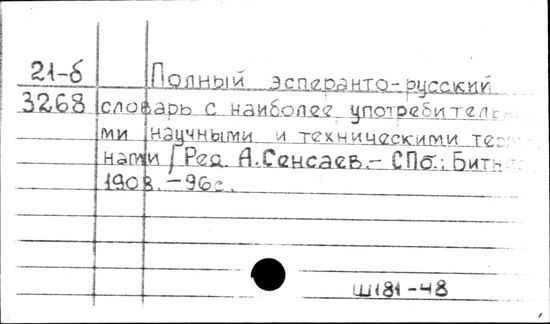 21-б Полный эсперанто-русский
3268 словарь с наиболее употребитель
ми научными и техническими тер
нами / Ред. А.Сенсаев.- СПб.: Битне
1908.-96с.
Ш181-48